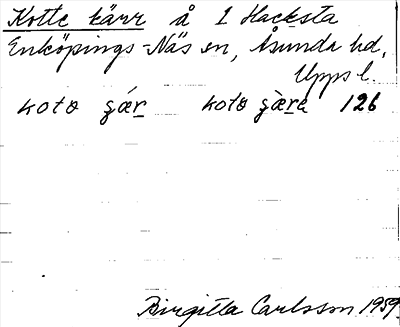 Kotte kärr å 1 Hacksta
Enköpings-Näs sn, Åsunda hd,
Upps l.
kotⱺ ȿár kotⱺ ȿæ̀ra 126
Birgitta Carlsson 1959